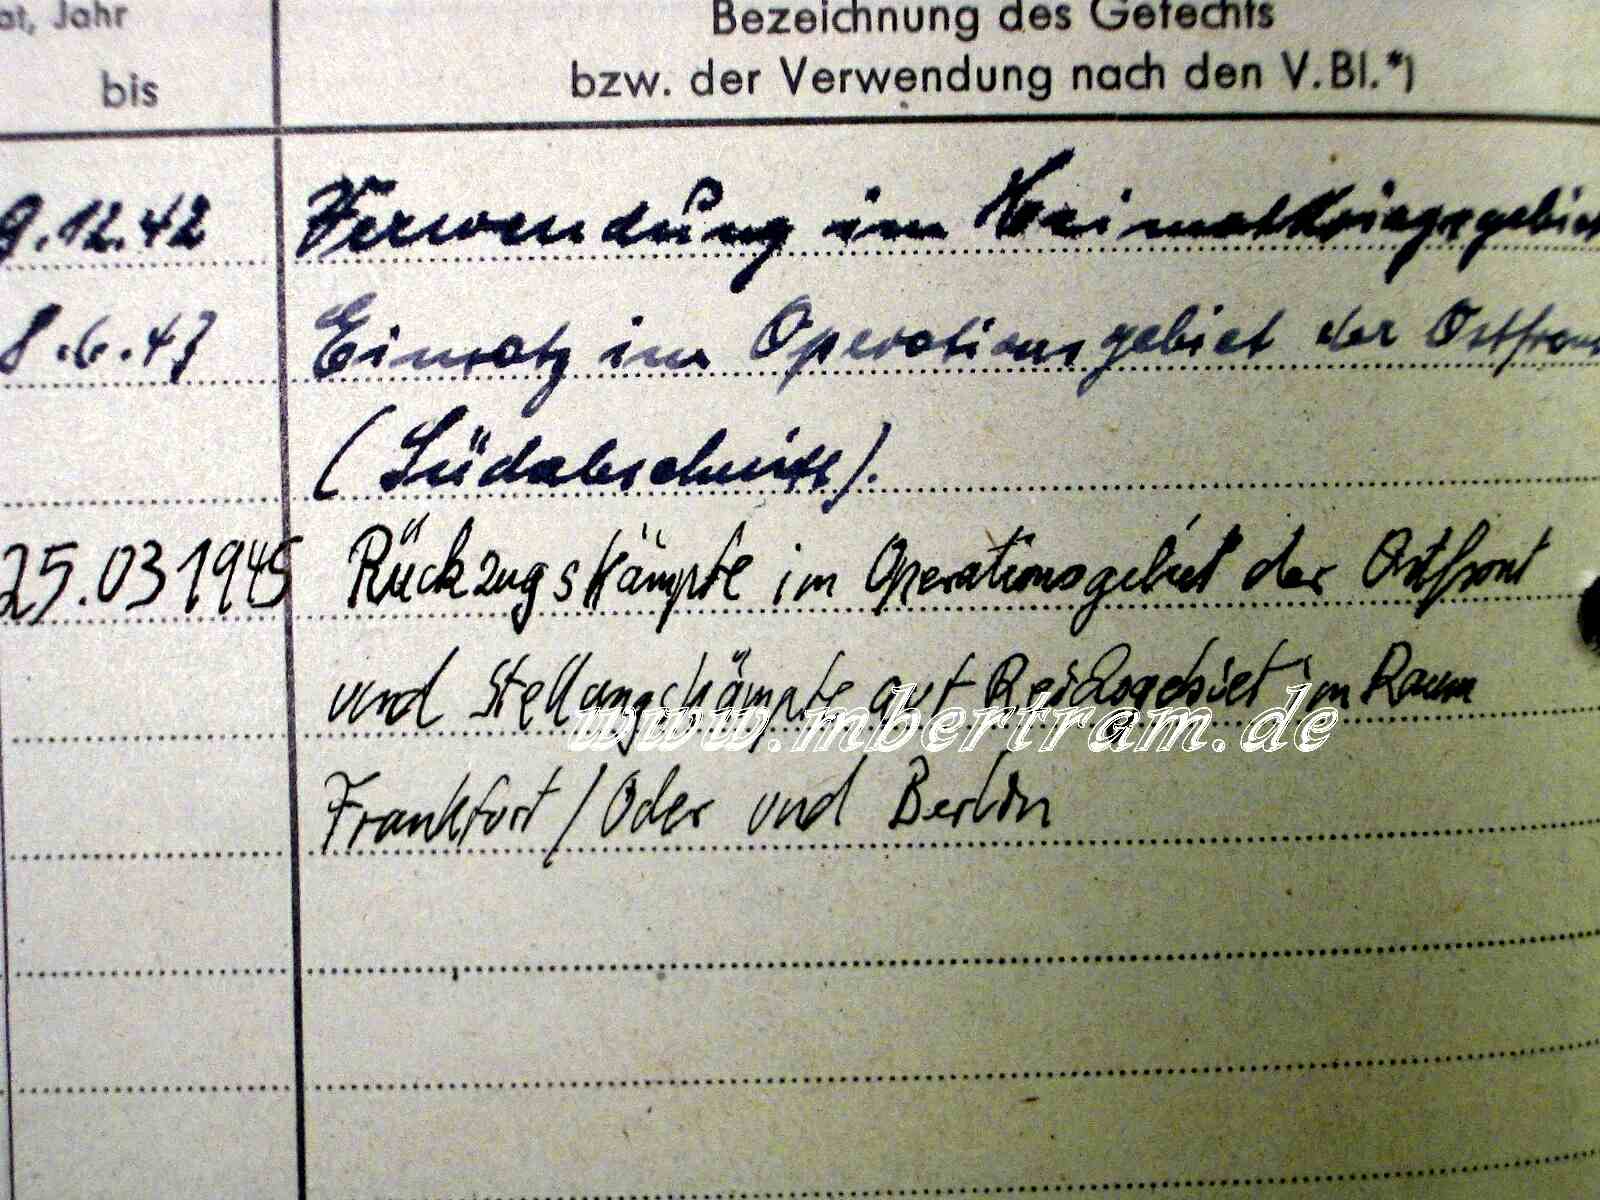 at, Jahr
bis
Bezeichnung des Gefechts
bzw. der Verwendung nach den V.Bl.*)
9.12.42 Verwendung im Heimatkriegsgebiet
8.6.43 Einsatz im Operationsgebiet der Ostfron
(Südabschnitt).
25.03 1945 Rückzugskämpfe im Operationsgebiet der Ostfront
und Stellungskämpfe auf Reichsgebiet im Raum
www.mbertram.de
Frankfurt / Oder und Berlin